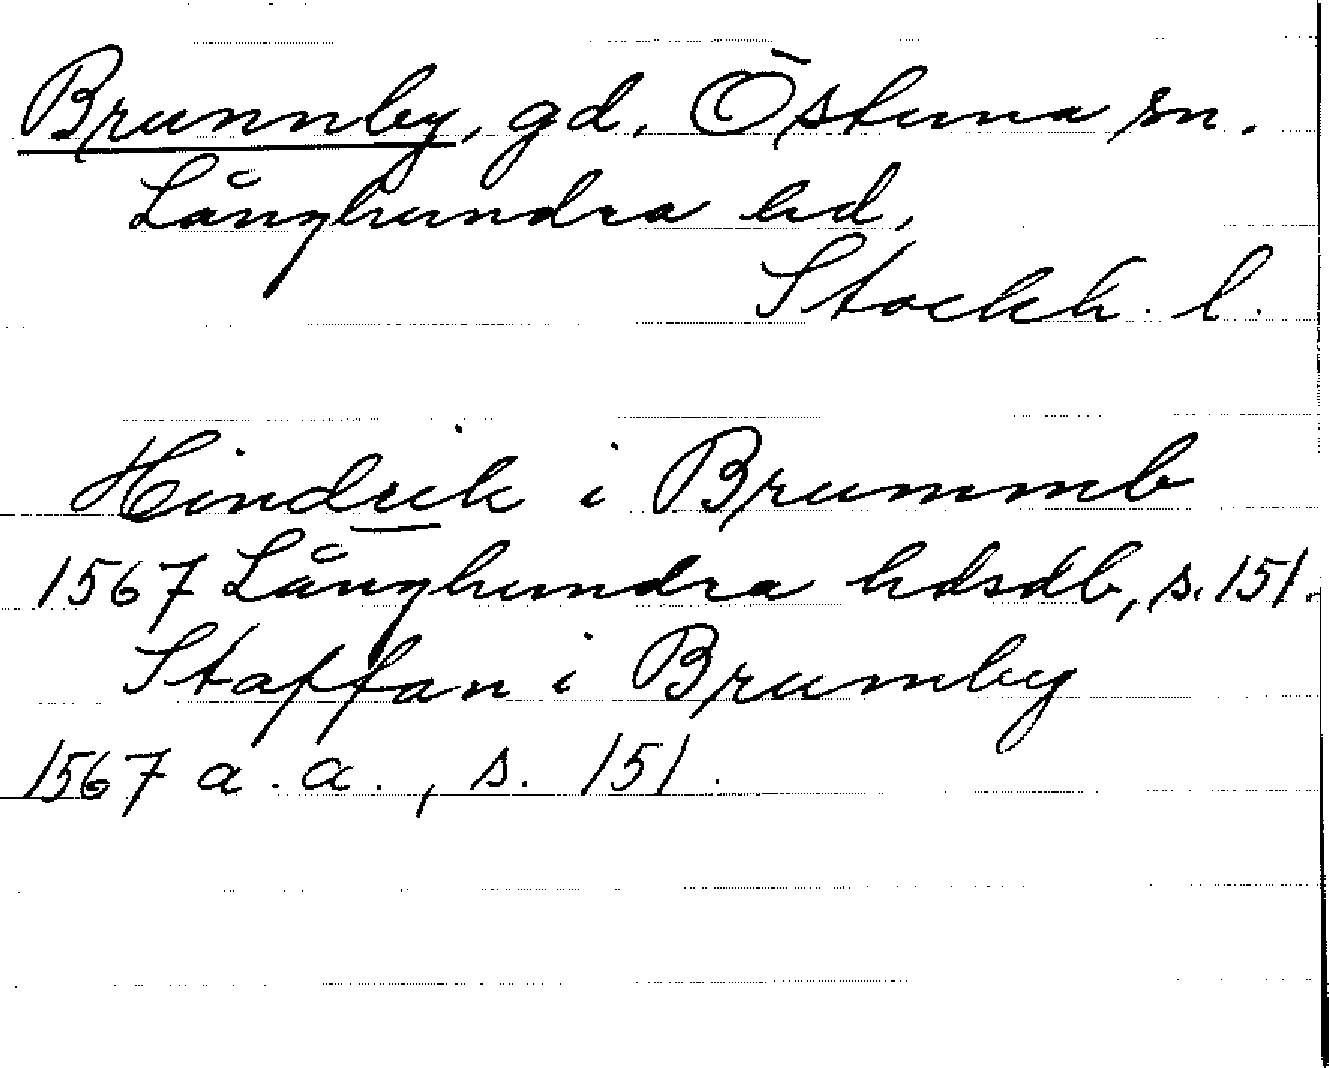 Brunnby, gd, Östuna sn.
Långhundra hd,
Stockh. l.
Hindrik i Brummb
1567 Långhundra hdsdb, s. 151.
Staffan i Brumby
1567 a. a., s. 151.